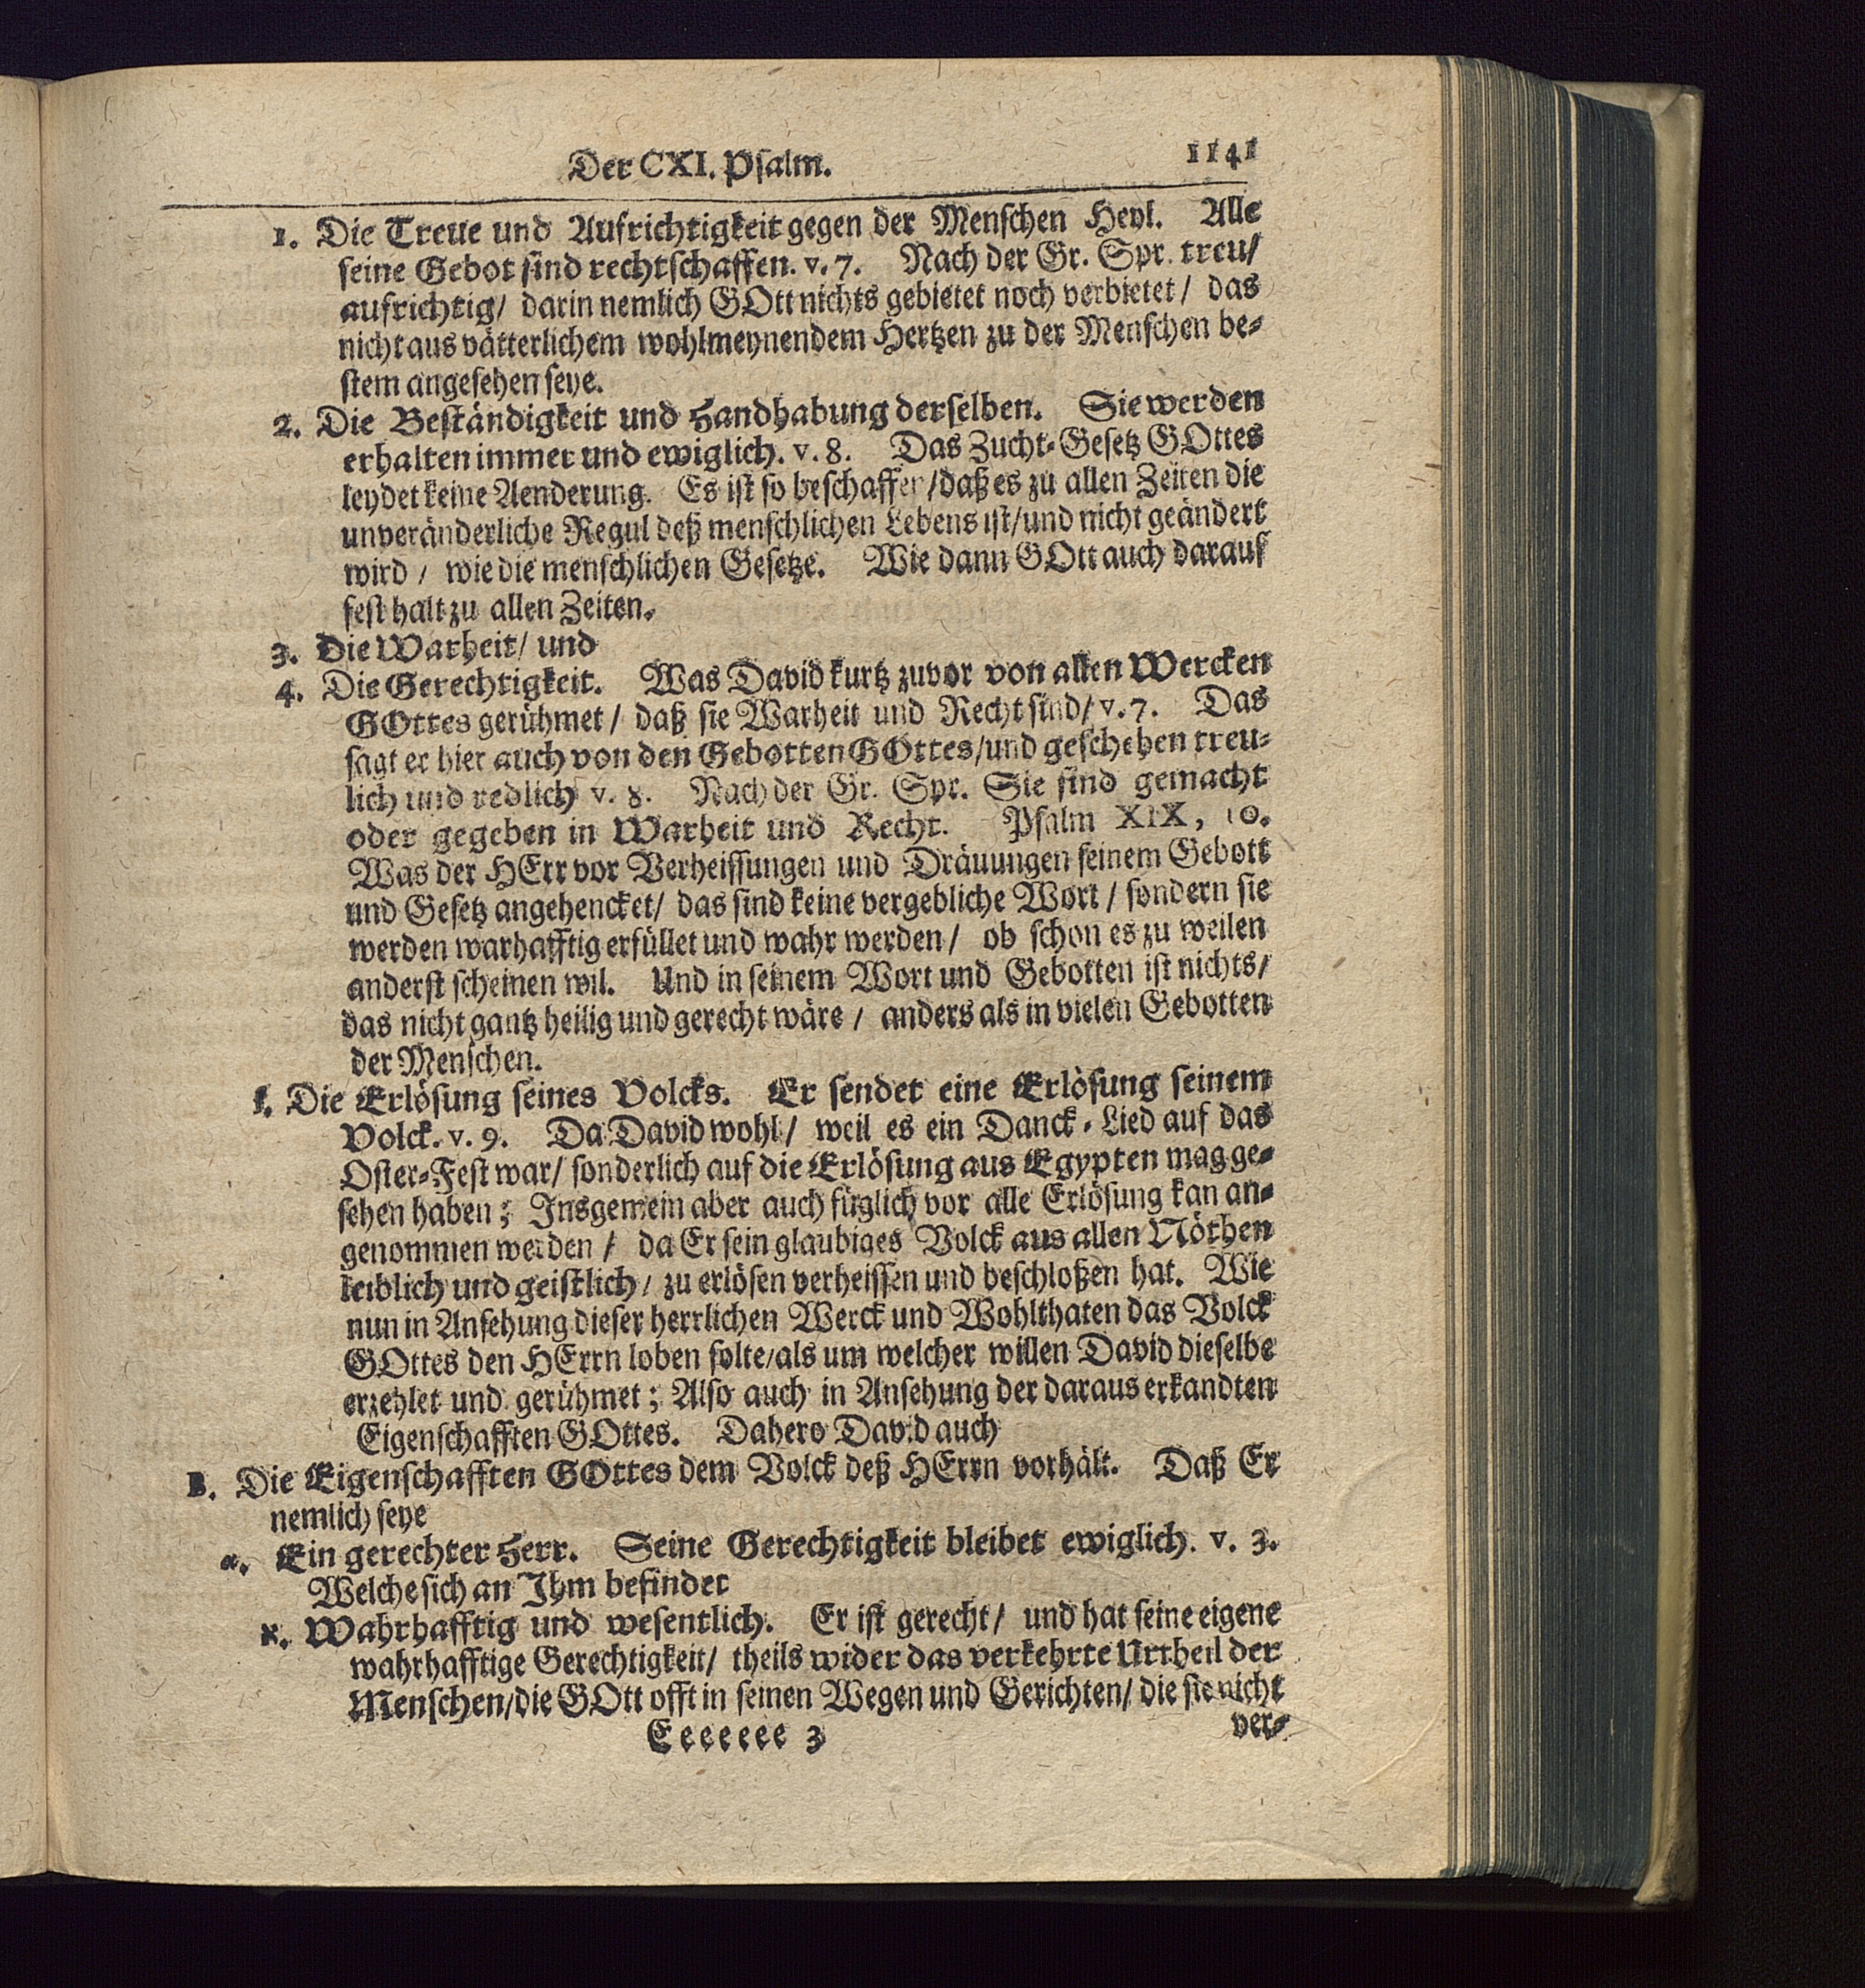 Der CXI. Psalm. 1141
1. Die Treue und Aufrichtigkeit gegen der Menschen Heyl. Alle
seine Gebot sind rechtschaffen. v. 7. Nach der Gr. Spr. treu/
aufrichtig/ darin nemlich GOtt nichts gebietet noch verbietet / das
nicht aus vätterlichem wohlmeynendem Hertzen zu der Menschen be-
stem angesehen seye.
2. Die Beständigkeit und Handhabung derselben. Sie werden
erhalten immer und ewiglich. v. 8. Das Zucht-Gesetz GOttes
leydet keine Aenderung. Es ist so beschaffen/daß es zu allen Zeiten die
unveränderliche Regul deß menschlichen Lebens ist/und nicht geändert
wird / wie die menschlichen Gesetze. Wie dann GOtt auch darauf
fest halt zu allen Zeiten.
3. Die Warheit/ und
4. Die Gerechtigkeit. Was David kurtz zuvor von allen Wercken
GOttes gerühmet / daß sie Warheit und Recht sind/ v. 7. Das
sagt er hier auch von den Gebotten GOttes/und geschehen treu-
lich und redlich v. 8. Nach der Gr. Spr. Sie sind gemacht
oder gegeben in Warheit und Recht. Psalm XIX, 10.
Was der HErr vor Verheissungen und Dräuungen seinem Gebott
und Gesetz angehencket/ das sind keine vergebliche Wort / sondern sie
werden warhafftig erfüllet und wahr werden / ob schon es zu weilen
anderst scheinen wil. Und in seinem Wort und Gebotten ist nichts/
das nicht gantz heilig und gerecht wäre / anders als in vielen Gebotten
der Menschen.
f. Die Erlösung seines Volcks. Er sendet eine Erlösung seinem
Volck. v. 9. Da David wohl/ weil es ein Danck-Lied auf das
Oster-Fest war/ sonderlich auf die Erlösung aus Egypten mag ge-
sehen haben; Insgemein aber auch füglich vor alle Erlösung kan an-
genommen werden / da Er sein glaubiges Volck aus allen Nöthen
leiblich und geistlich / zu erlösen verheissen und beschloßen hat. Wie
nun in Ansehung dieser herrlichen Werck und Wohlthaten das Volck
GOttes den HErrn loben solte/als um welcher willen David dieselbe
erzehlet und gerühmet; Also auch in Ansehung der daraus erkandten
Eigenschafften GOttes. Dahero David auch
B. Die Eigenschafften GOttes dem Volck deß HErrn vorhält. Daß Er
nemlich seye
a. Ein gerechter Herr. Seine Gerechtigkeit bleibet ewiglich. v. 3.
Welche sich an Ihm befindet
א. Wahrhafftig und wesentlich. Er ist gerecht/ und hat seine eigene
wahrhafftige Gerechtigkeit/ theils wider das verkehrte Urtheil der
Menschen/die GOtt offt in seinen Wegen und Gerichten/ die sie nicht
Eeeeeee 3 ver-